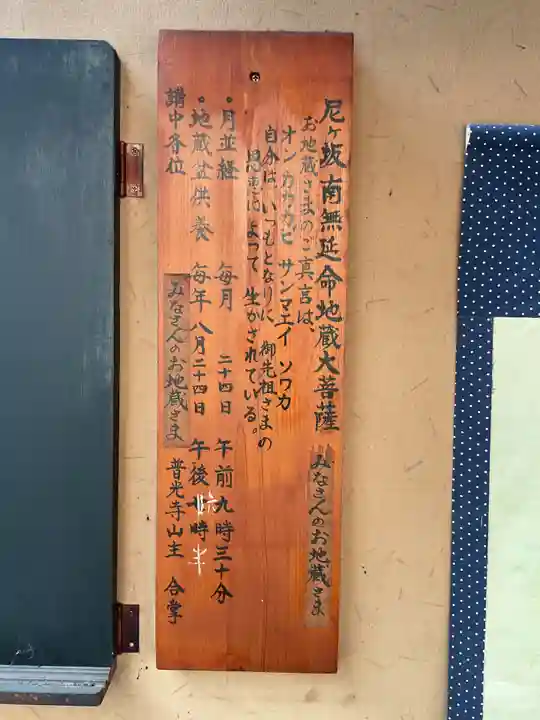 尼ヶ坂 南無延命地蔵大菩薩 みなさんのお地蔵さま
お地蔵さまのご真言は、
オン カカカビ サンマエイ ソワカ
自分は、いつもとなりに 御先祖さまの
恩恵によって 生かされている。
・月並経 毎月 二十四日 午前九時三十分
・地蔵盆供養 毎年 八月二十四日 午後 時半
講中各位 みなさんのお地蔵さま 普光寺山主 合掌